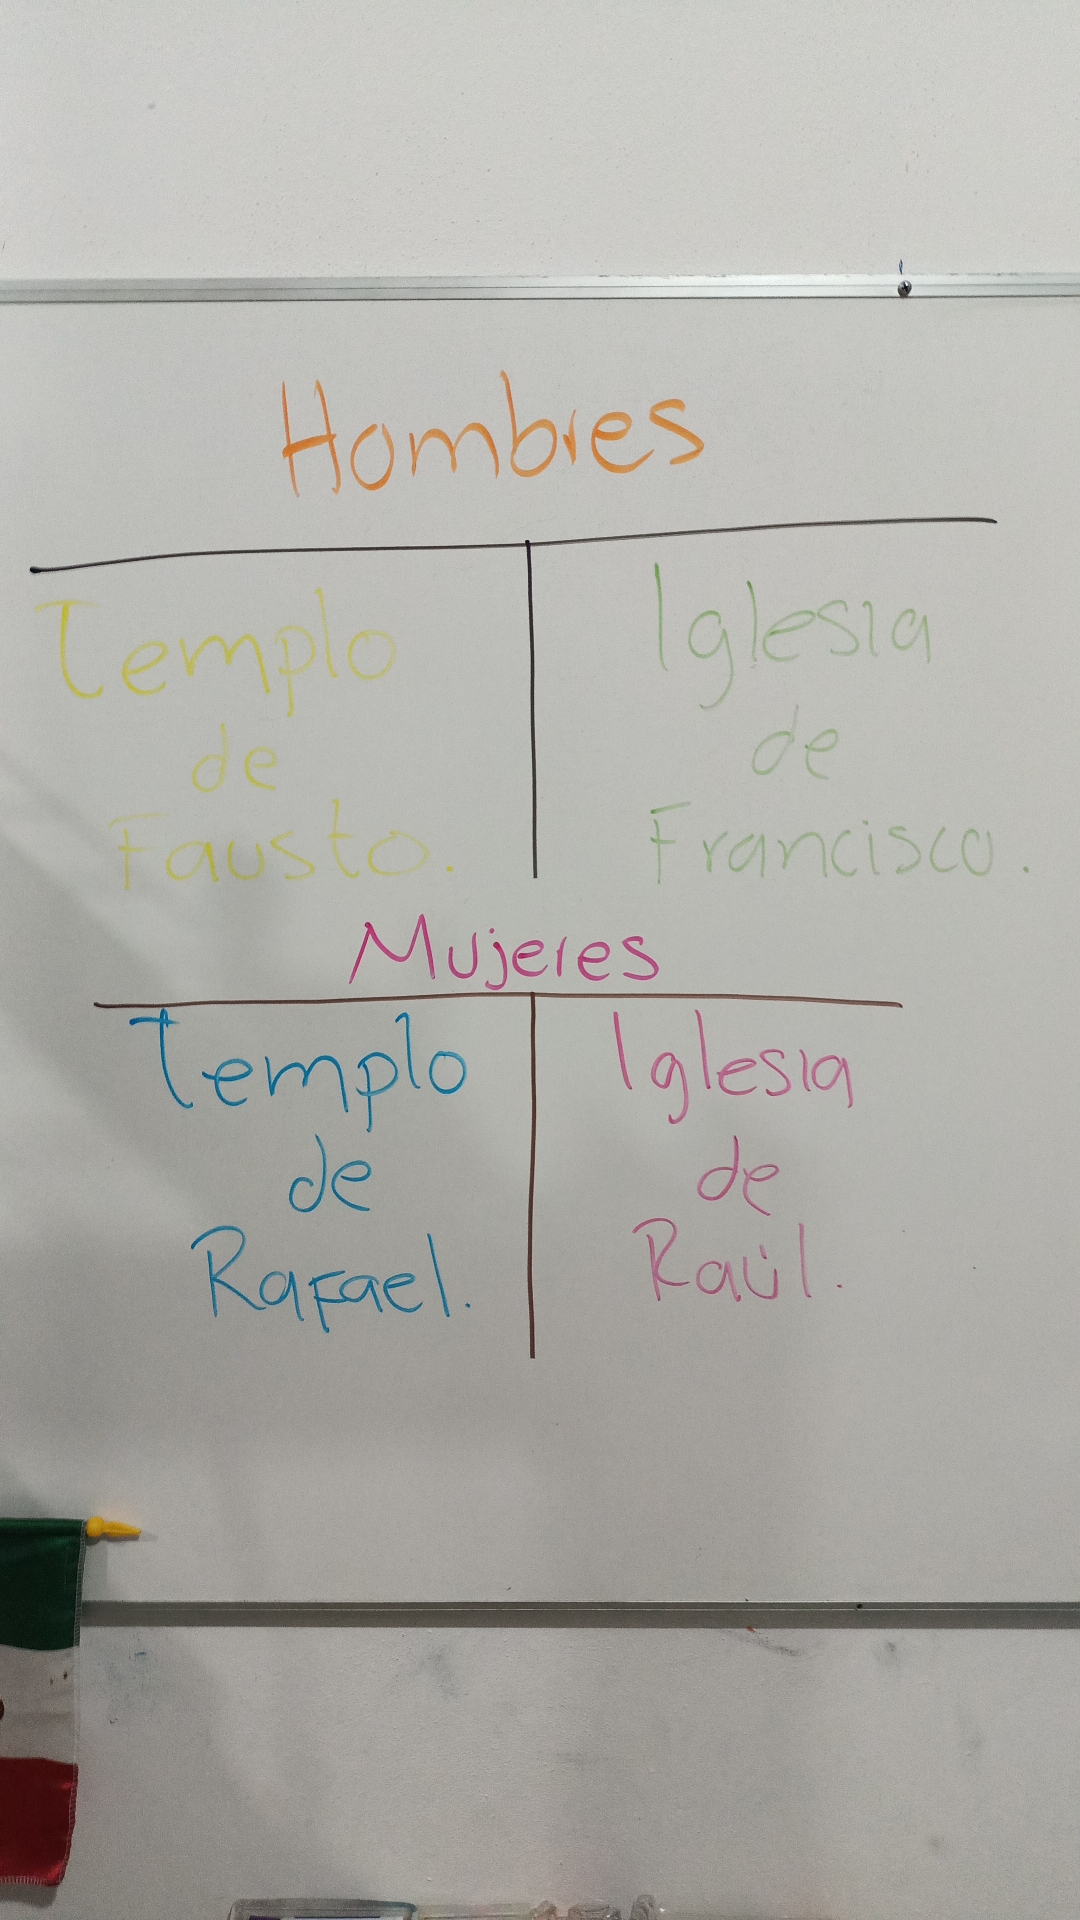 Hombres
Templo
de
Fausto.
Iglesia
de
Francisco.
Mujeres
Templo
de
Rafael.
Iglesia
de
Raúl.